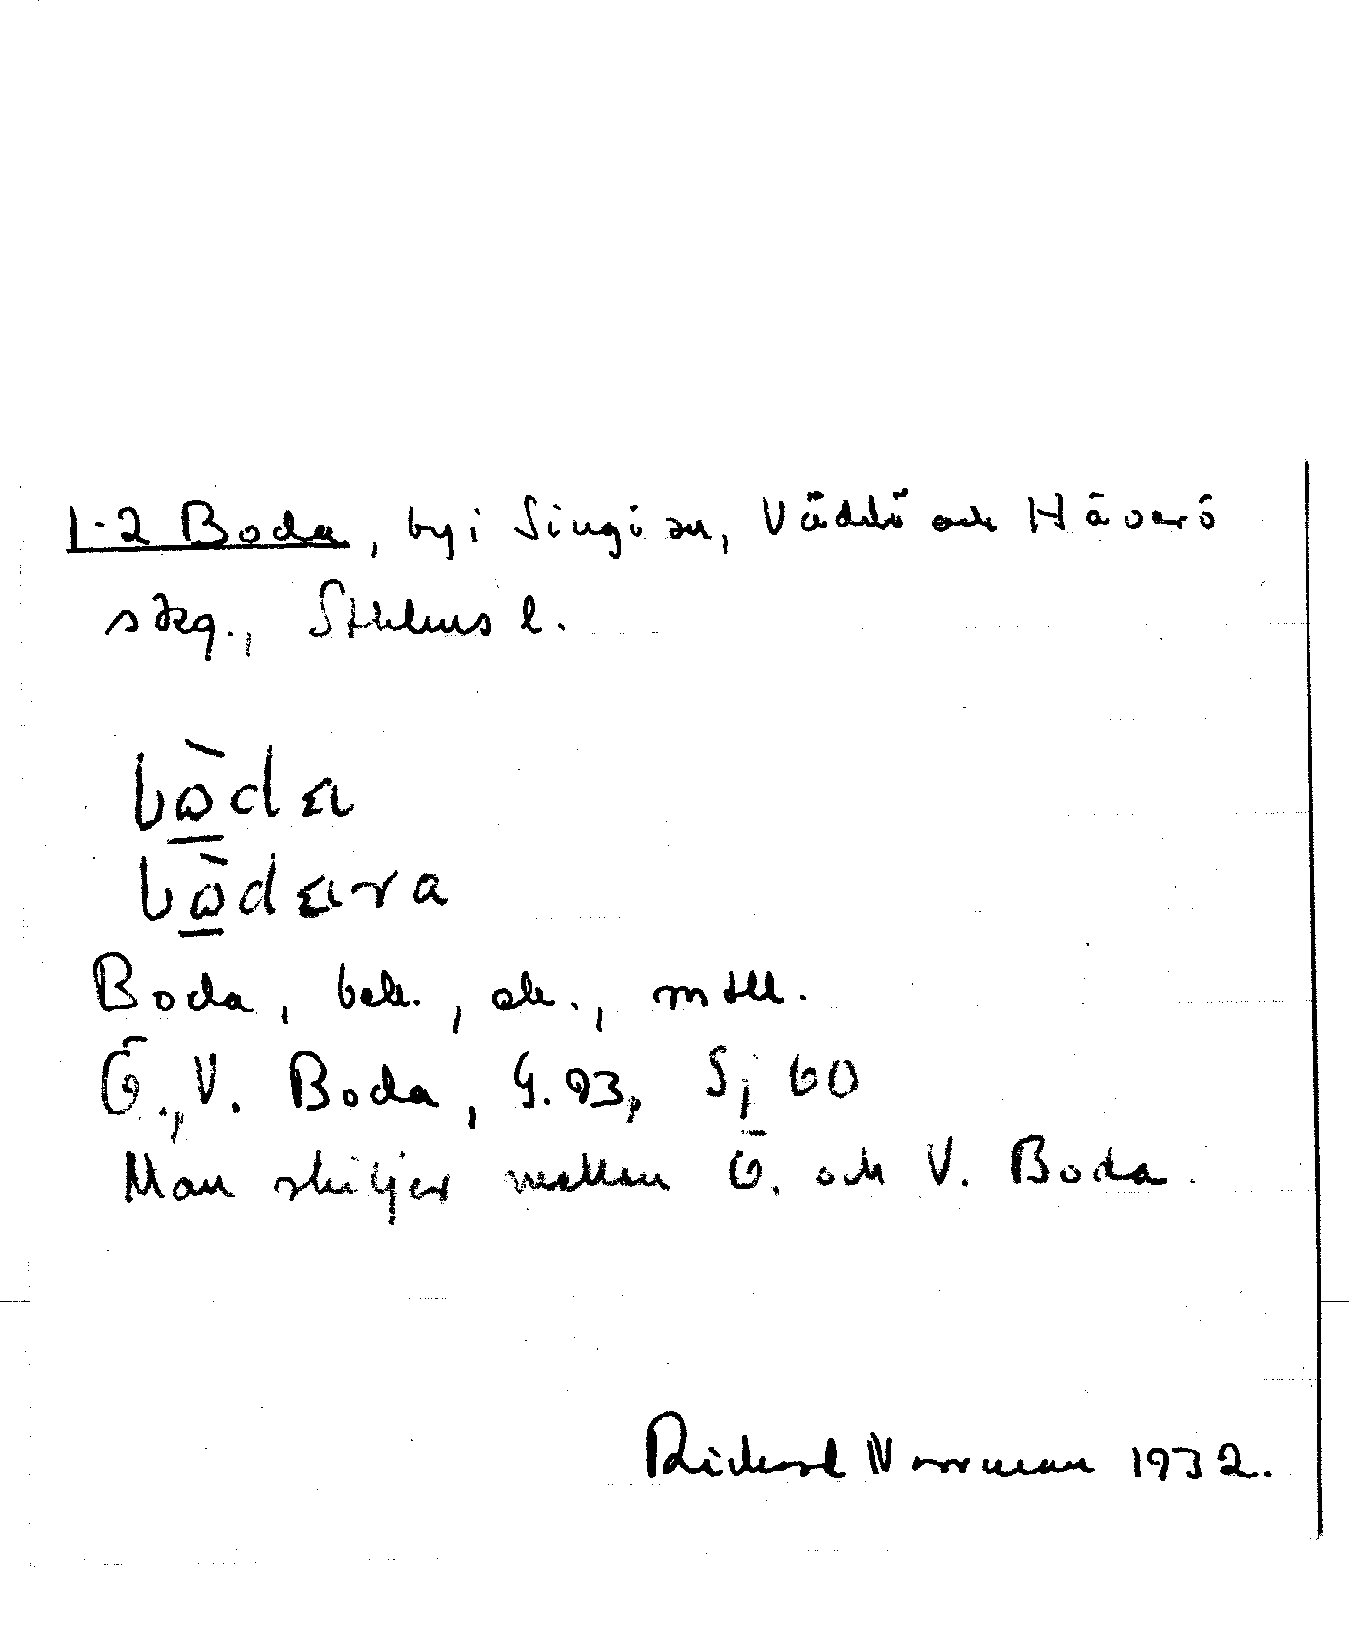 1-2 Boda, by i Singö sn, Väddö och Häverö
skg., Sthlms l.
bò̲da
bò̲dara
Boda, bek., ek., mtll.
Ö., V. Boda, G. 93, S; 60
Man skiljer mellan Ö. och V. Boda.
Rickard Norrman 1932.